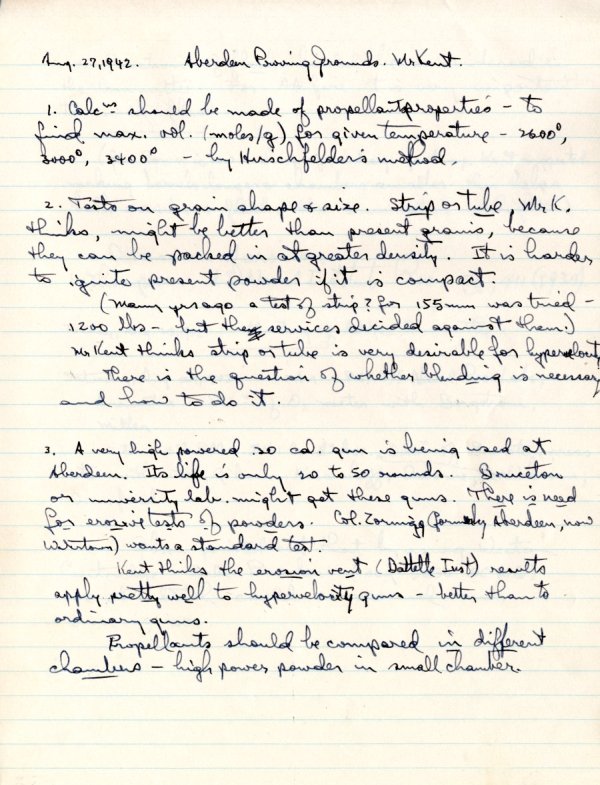 Aug. 27, 1942. Aberdeen Proving Grounds. Mr Kent.
1. Calcns should be made of propellant properties – to
find max. vol. (moles/g) for given temperature – 2600°,
3000°, 3400° – by Hirschfelder's method.
2. Tests on grain shape & size. Strip or tube, Mr K.
thinks, might be better than present grains, because
they can be packed in at greater density. It is harder
to ignite present powder if it is compact.
(Many yrs ago a test of strip? for 155mm was tried –
1200 lbs – but the services decided against them.)
Mr Kent thinks strip or tube is very desirable for hypervelocity
There is the question of whether blending is necessary
and how to do it.
3. A very high powered .50 cal. gun is being used at
Aberdeen. Its life is only 20 to 50 rounds. Bruceton
or university lab. might get these guns. There is need
for erosive tests of powders. Col. Zornig (formerly Aberdeen, now
) wants a standard test.
Kent thinks the erosion vent (Battelle Inst) results
apply pretty well to hypervelocity guns – better than to
ordinary guns.
Propellants should be compared in different
chambers – high power powder in small chamber.